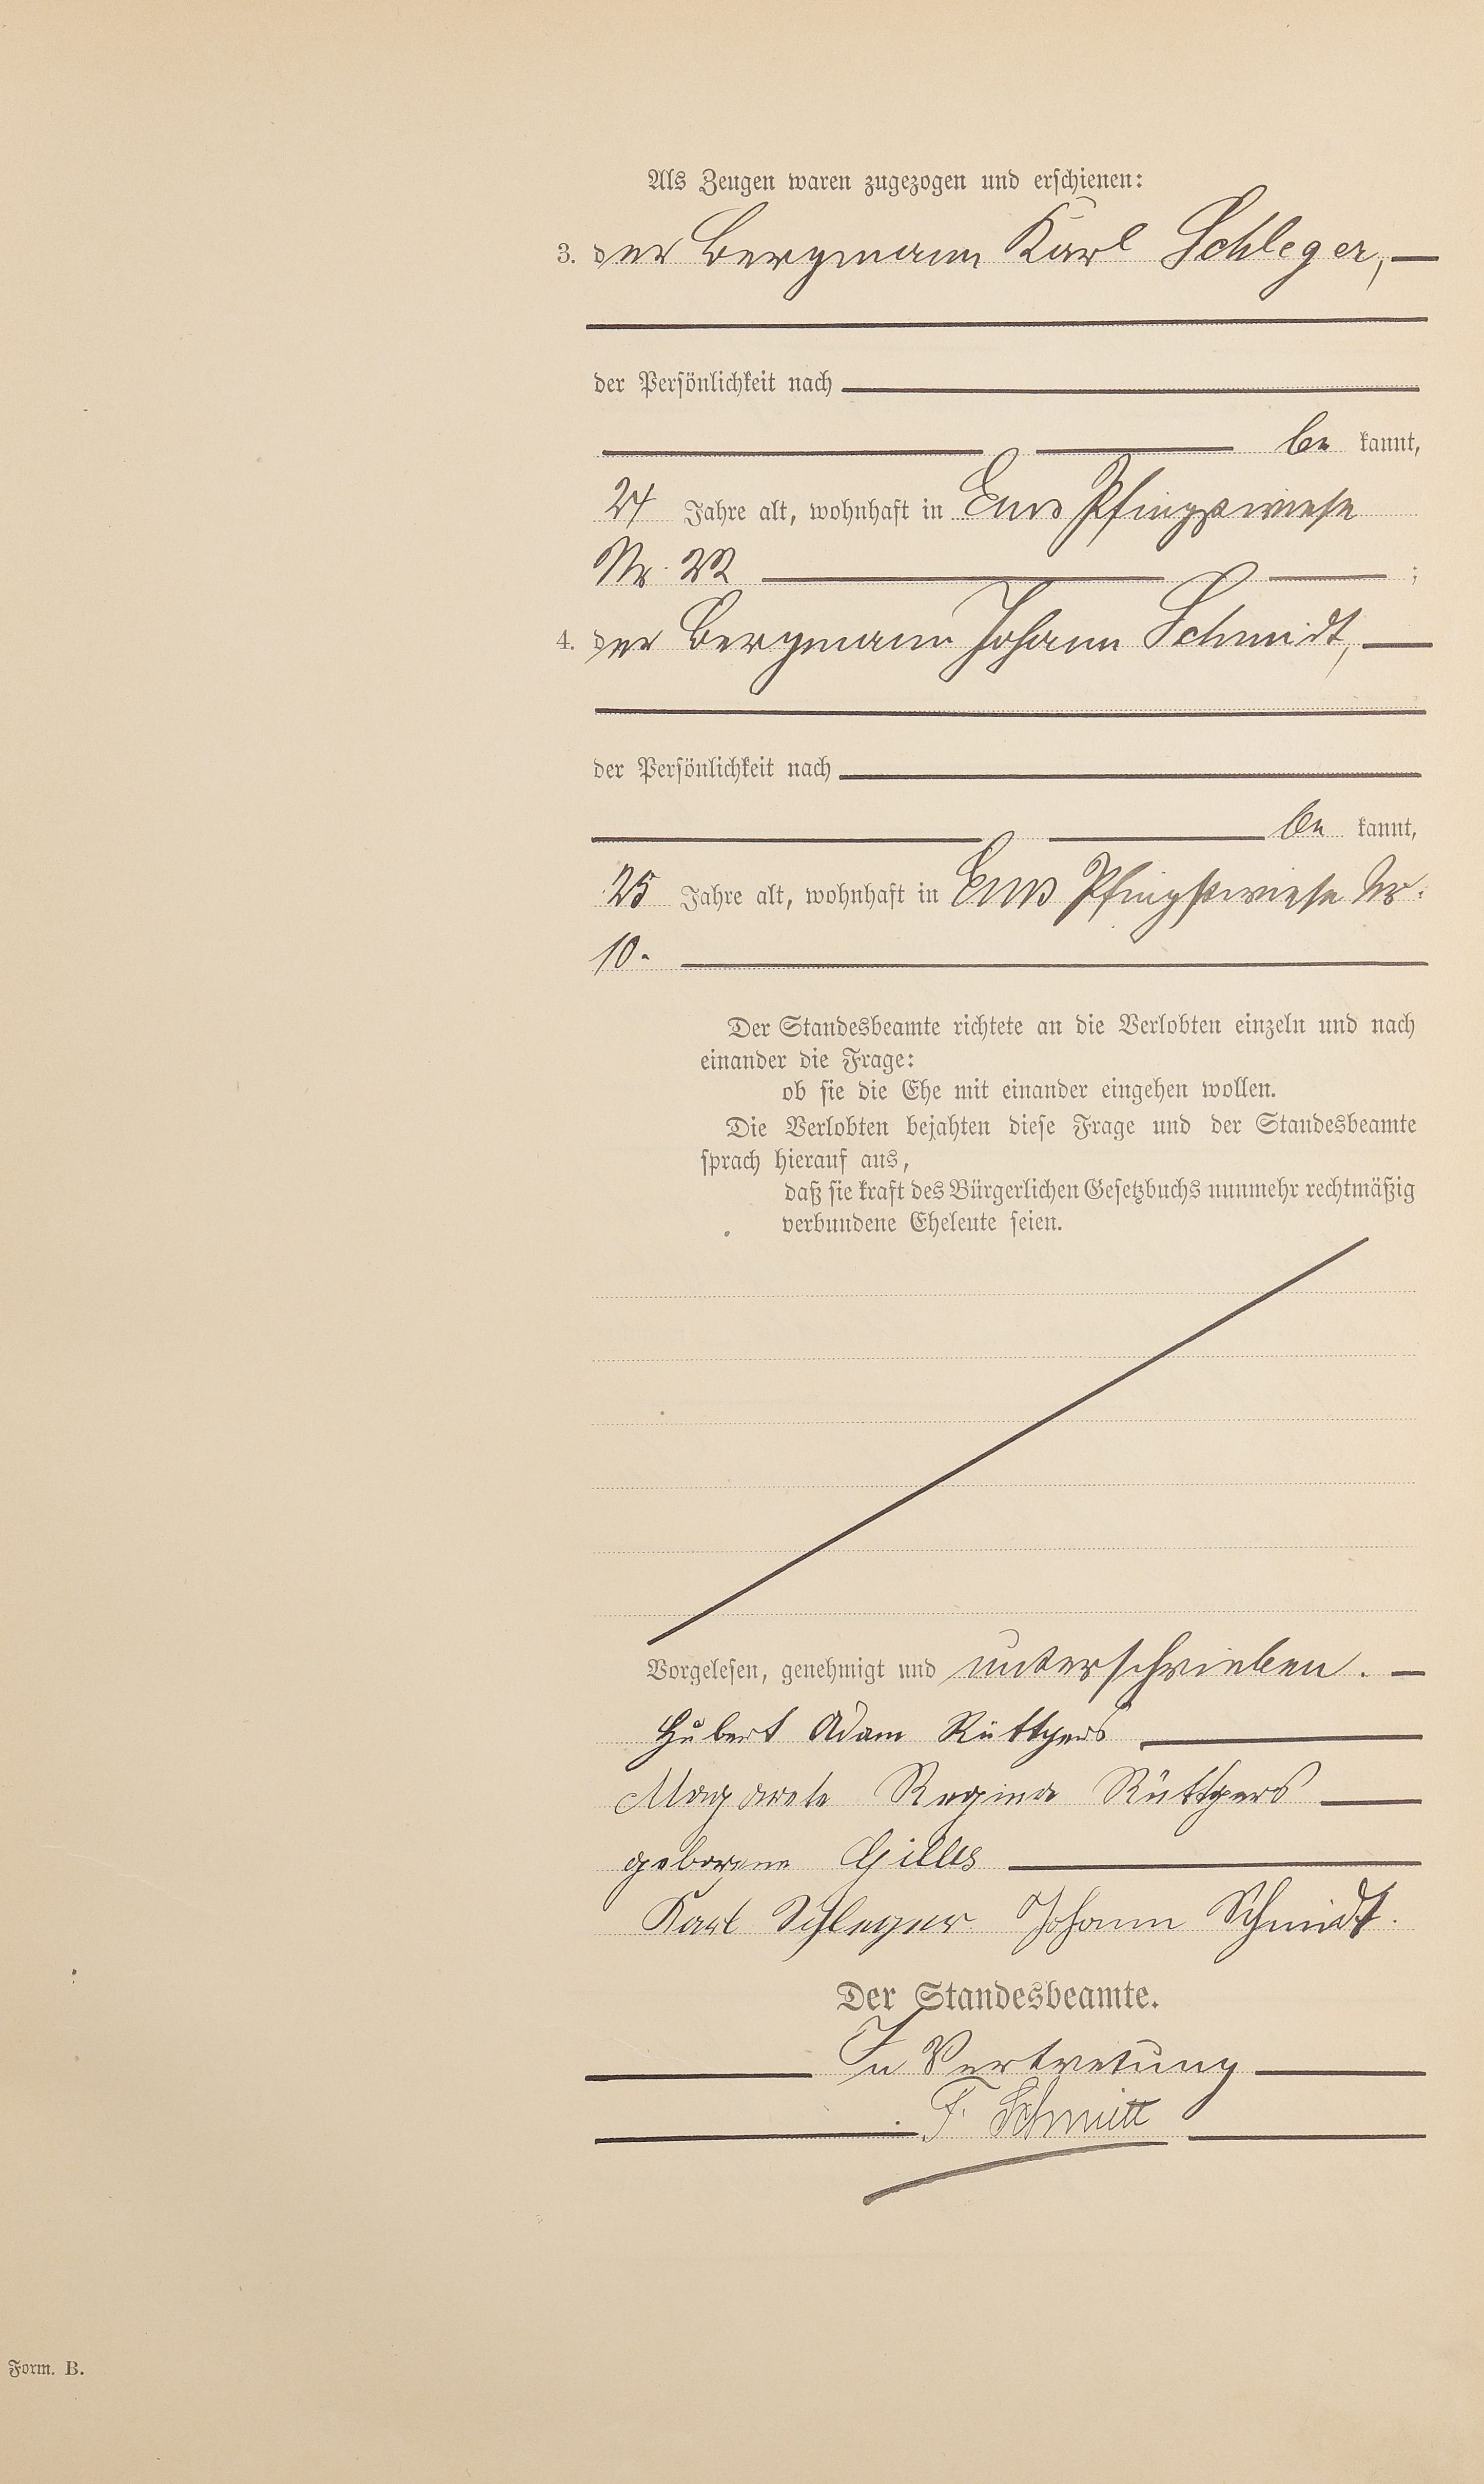 Als Zeugen waren zugezogen und erschienen:
3. der Bergmann Karl Schleger,
der Persönlichkeit nach
be kannt,
24 Jahre alt, wohnhaft in Ems Pfingstwiese
Nr. 22 ;
4. der Bergmann Johann Schmidt,
der Persönlichkeit nach
be kannt,
25 Jahre alt, wohnhaft in Ems Pfingstwiese Nr.
10.
Der Standesbeamte richtete an die Verlobten einzeln und nach
einander die Frage:
ob sie die Ehe mit einander eingehen wollen.
Die Verlobten bejahten diese Frage und der Standesbeamte
sprach hierauf aus,
daß sie kraft des Bürgerlichen Gesetzbuchs nunmehr rechtmäßig
verbundene Eheleute seien.
Vorgelesen, genehmigt und unterschrieben.
Hubert Adam Rüttgers
Magarete Regina Rüttgers
geborene Gilles
Karl Schleger Johann Schmidt.
Der Standesbeamte.
In Vertretung
F. Schmitt
Form. B.